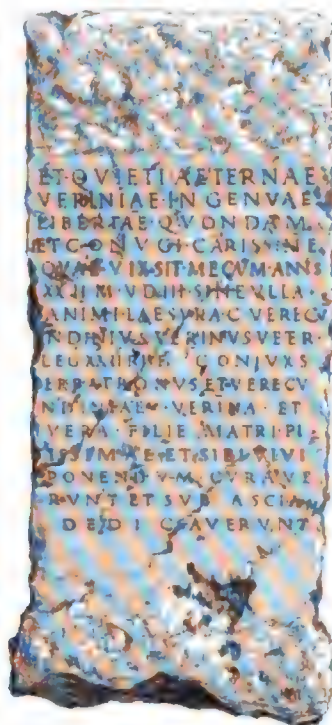 ET·QVIETI·AETERNAE
VERINIAE·INGENVAE
LIBERTAE·QVONDAM
ET CONIVGI·CARISSIME
QVAE·VIXSIT·MECVM·ANNIS
XXII·M·V·D·III·SINE VLLA
ANIMI·LAESVRA·C·VERECV
NDINIVS·VERINVS·VETER
LEG·XXII·PR·P· CONIVXS
ET·PATRONVS·ET·VERECV
VERINA· ET
VERA· FILIE MATRI·PI
ISSIMAE·ET·SIBI·VIVI
PONENDVM·CVRAVE
RVNT ET SVB ASCIA
DEDICAVERVNT